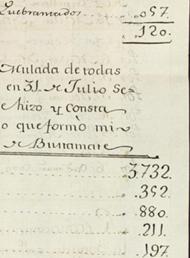 Quebrantados ..057.
..120.
Mulada de todas
en 31. de Julio Se-
hizo y Consta
o que formò mi-
de Bustamante
.3.732.
..352.
..880.
..211.
..197.